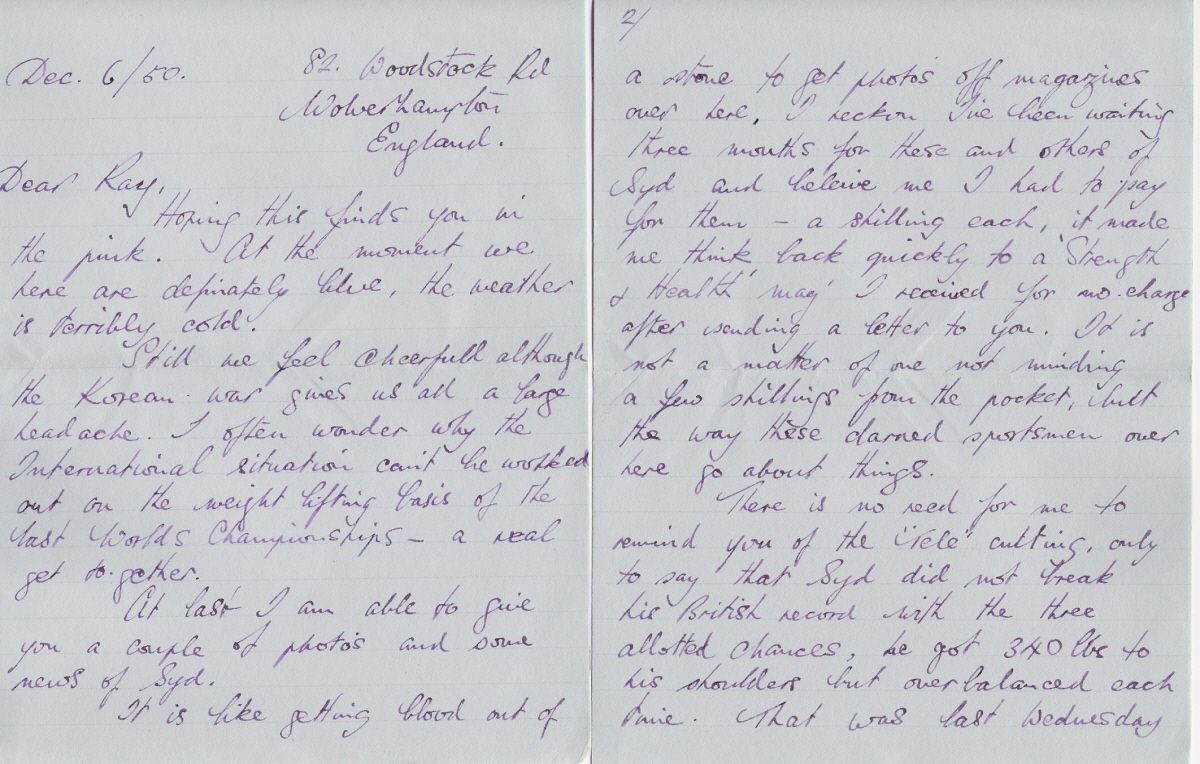 Dec. 6/50.
82. Woodstock Rd
Wolverhampton
England.
Dear Ray,
Hoping this finds you in
the pink. At the moment we
here are definately blue, the weather
is terribly cold.
Still we feel cheerfull although
the Korean war gives us all a large
headache. I often wonder why the
International situation can't be worked
out on the weight lifting basis of the
last Worlds Championships – a real
get to-gether.
At last I am able to give
you a couple of photo's and some
news of Syd.
It is like getting blood out of
2/
a stone to get photo's off magazines
over here, I reckon I've been waiting
three months for these and others of
Syd and beleive me I had to pay
for them – a shilling each, it made
me think back quickly to a 'Strength
& Health' mag' I received for no charge
after sending a letter to you. It is
not a matter of one not minding
a few shillings from the pocket, but
the way these darned sportsmen over
here go about things.
There is no need for me to
remind you of the 'Tele' cutting, only
to say that Syd did not break
his British record with the three
allotted chances, he got 340 lbs to
his shoulders but overbalanced each
time. That was last Wednesday